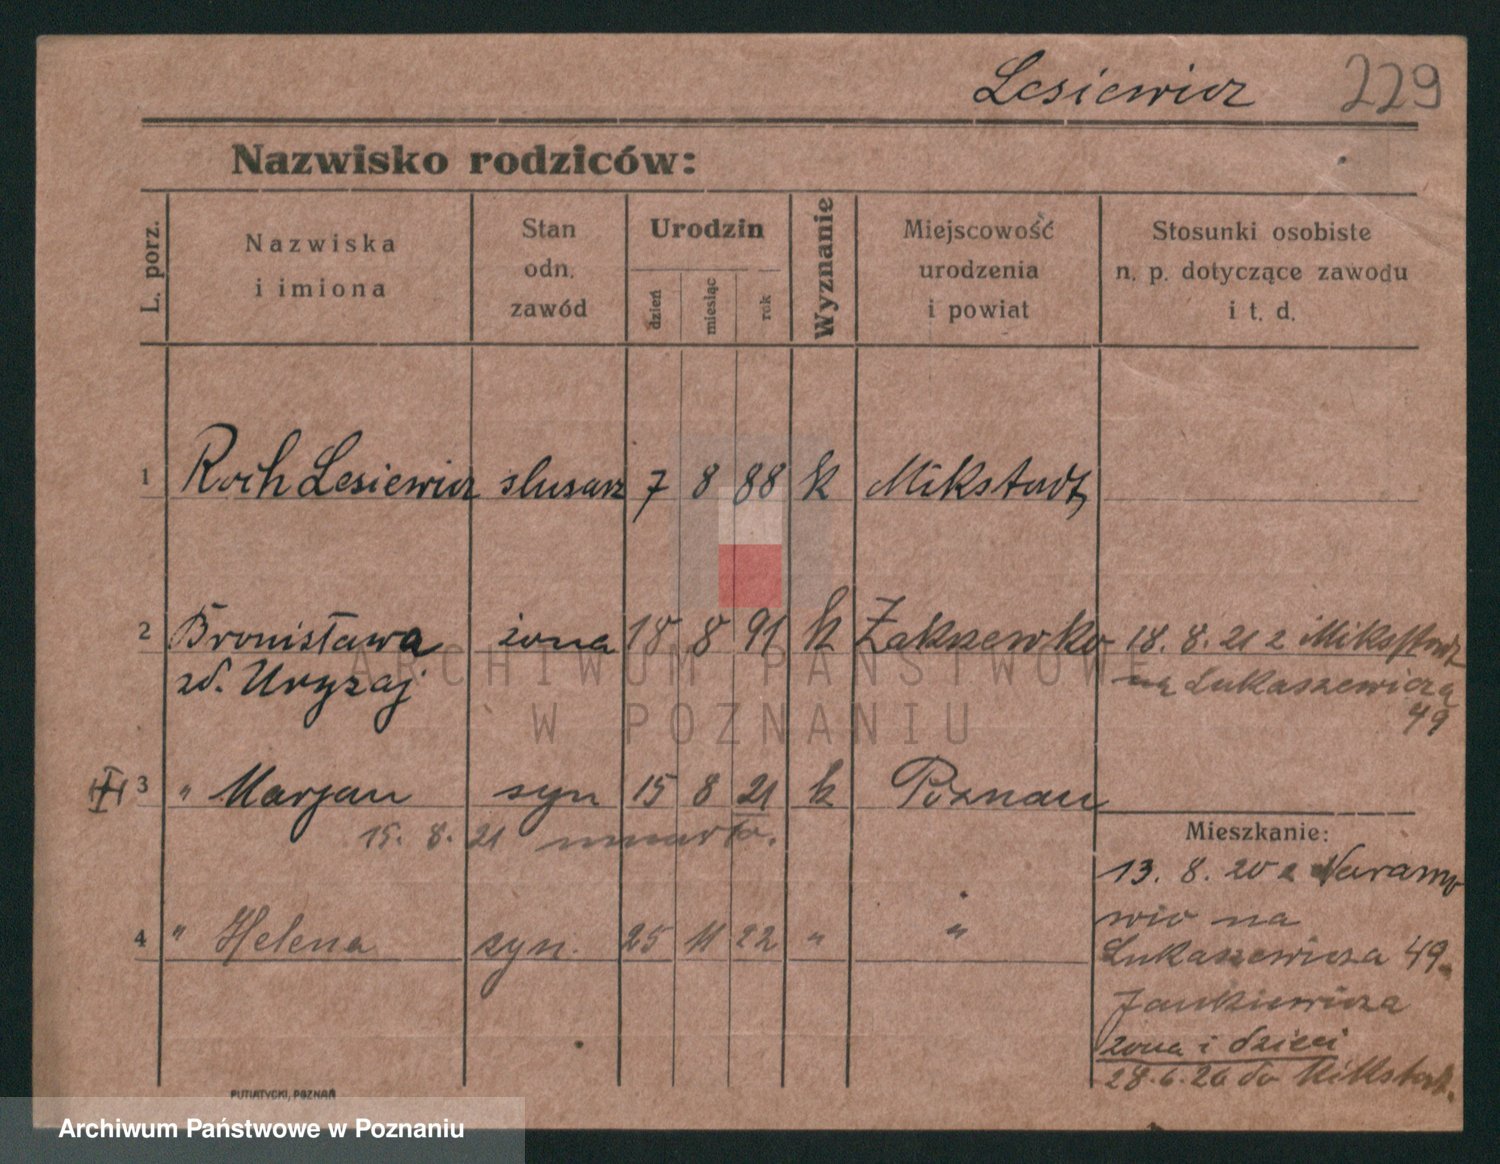 Lesiewicz 229
Nazwisko rodziców:
L. porz.
Nazwiska
i imiona
Stan
odn.
zawód
Urodzin
dzień
miesiąc
rok
Wyznanie
Miejscowość
urodzenia
i powiat
Stosunki osobiste
n. p. dotyczące zawodu
i t. d.
1 Roch Lesiewicz slusarz 7 8 88 k Mikstadt
2 Bronisława żona 18 8 91 k Zakszewko 18. 8. 21 z Mikstadt
zd. Uryzaj
na Lukaszewicza
49
3 " Marjan syn 15 8 21 k Poznan
15. 8. 21
Mieszkanie:
13. 8. 20 z Naramo
wic na
Lukaszewicza 49.
4 " Helena syn. 25 11 22 " "
Jankiewicza
żona i dzieci
28.6.26 do Mikstadt.
PUTIATYCKI, POZNAŃ
ARCHIWUM PAŃSTWOWE
W POZNANIU
Archiwum Państwowe w Poznaniu